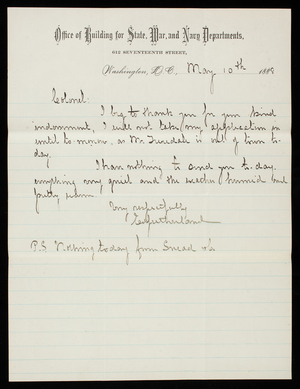 Office of Building for State, War, and Navy Departments,
612 SEVENTEENTH STREET,
Washington, D. C., May 10th 188
Colonel:
I beg to thank you for your kind
indorsement, I will not take my application in
until to-morrow, as Mr. is out of town to-
day.
I have nothing to send you to-day.
everything very quiet and the weather humid and
pretty warm.
Very respectfully
P.S. Nothing today from Snead